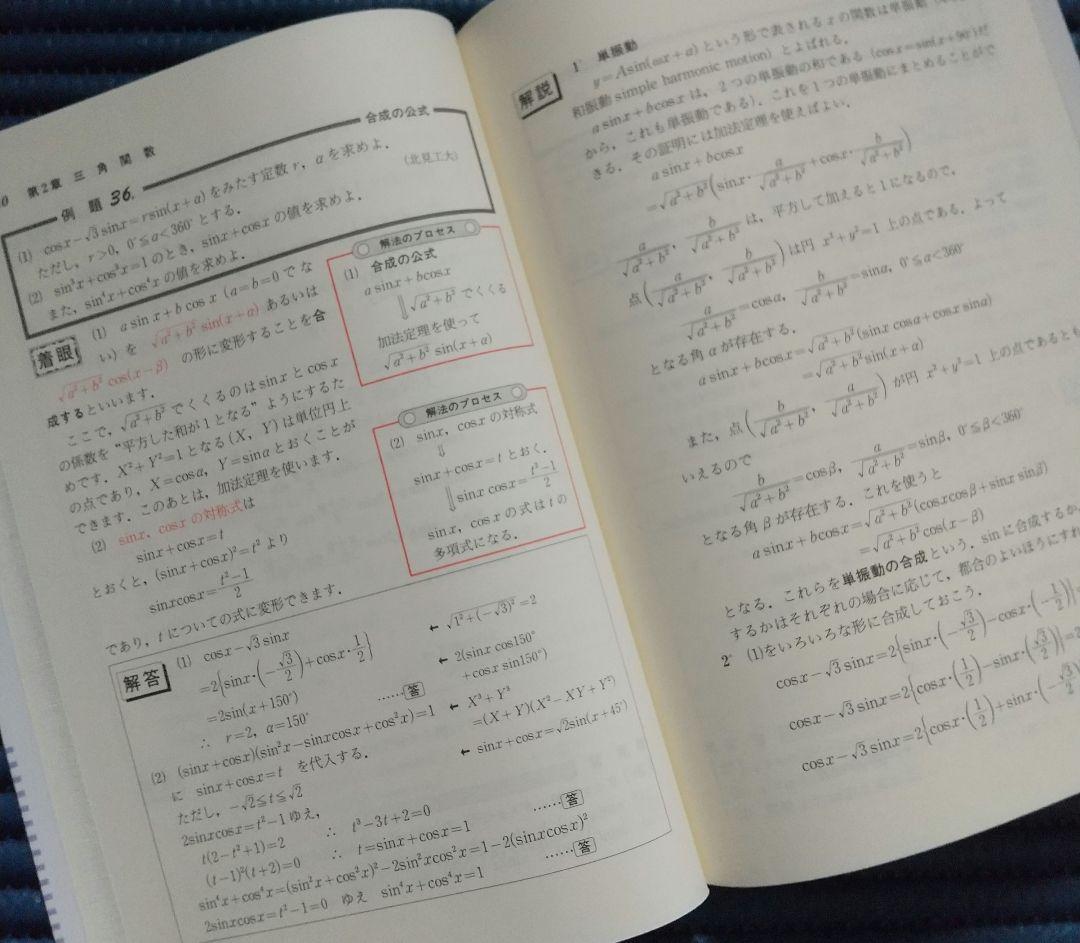 0 第2章 三角関数
例題 36. 合成の公式
(1) cosx−√3 sinx=rsin(x+α)をみたす定数 r, αを求めよ.
ただし, r>0, 0°≦α<360°とする. (北見工大)
(2) sin³x+cos³x=1のとき, sinx+cosxの値を求めよ.
また, sin⁴x+cos⁴xの値を求めよ.
着眼
(1) a sin x+b cos x (a=b=0でな
い) を √a²+b² sin(x+α) あるいは
√a²+b² cos(x−β) の形に変形することを合
成するといいます.
ここで, √a²+b² でくくるのはsinxとcosx
の係数を“平方した和が1となる”ようにするた
めです. X²+Y²=1となる(X, Y)は単位円上
の点であり, X=cosα, Y=sinαとおくことが
できます. このあとは, 加法定理を使います.
(2) sinx, cosxの対称式は
sinx+cosx=t
とおくと, (sinx+cosx)²=t² より
sinxcosx=(t²−1)/2
であり, tについての式に変形できます.
解法のプロセス
(1) 合成の公式
a sinx+bcosx
⇓ √a²+b² でくくる
加法定理を使って
√a²+b² sin(x+α)
解法のプロセス
(2) sinx, cosxの対称式
⇓
sinx+cosx=t とおく.
⇓ sinx cosx=(t²−1)/2
sinx, cosxの式はtの
多項式になる.
解答
(1) cosx−√3 sinx ← √1²+(−√3)²=2
=2{sinx·(−√3/2)+cosx·1/2}
=2sin(x+150°) ← 2(sinx cos150°
+cosx sin150°)
∴ r=2, α=150° ……答
(2) (sinx+cosx)(sin²x−sinxcosx+cos²x)=1 ← X³+Y³
=(X+Y)(X²−XY+Y²)
に sinx+cosx=t を代入する. ← sinx+cosx=√2sin(x+45°)
ただし, −√2≦t≦√2
2sinxcosx=t²−1ゆえ,
t(2−t²+1)=2 ∴ t³−3t+2=0
(t−1)²(t+2)=0 ∴ t=sinx+cosx=1 ……答
sin⁴x+cos⁴x=(sin²x+cos²x)²−2sin²xcos²x=1−2(sinxcosx)²
2sinxcosx=t²−1=0 ゆえ sin⁴x+cos⁴x=1 ……答
解説
1° 単振動
y=Asin(ωx+α)という形で表されるxの関数は単振動
和振動simple harmonic motion)とよばれる.
a sinx+bcosxは, 2つの単振動の和である(cosx=sin(x+90°)だ
から, これも単振動である). これを1つの単振動にまとめることがで
きる. その証明には加法定理を使えばよい.
a sinx+bcosx
=√a²+b²(sinx·a/√a²+b²+cosx·b/√a²+b²)
a/√a²+b², b/√a²+b² は, 平方して加えると1になるので,
点(a/√a²+b², b/√a²+b²)は円 x²+y²=1 上の点である. よって
a/√a²+b²=cosα, b/√a²+b²=sinα, 0°≦α<360°
となる角αが存在する.
a sinx+bcosx=√a²+b²(sinx cosα+cosx sinα)
=√a²+b² sin(x+α)
また, 点(b/√a²+b², a/√a²+b²)が円 x²+y²=1 上の点であるとも
いえるので
b/√a²+b²=cosβ, a/√a²+b²=sinβ, 0°≦β<360°
となる角βが存在する. これを使うと
a sinx+bcosx=√a²+b²(cosxcosβ+sinx sinβ)
=√a²+b² cos(x−β)
となる. これらを単振動の合成という. sinに合成するか,
するかはそれぞれの場合に応じて, 都合のよいほうにすれ
2° (1)をいろいろな形に合成しておこう.
cosx−√3 sinx=2{sinx·(−√3/2)−cosx·(−1/2)}
cosx−√3 sinx=2{cosx·(1/2)−sinx·(√3/2)}=2
cosx−√3 sinx=2{cosx·(1/2)+sinx·(−√3/2)